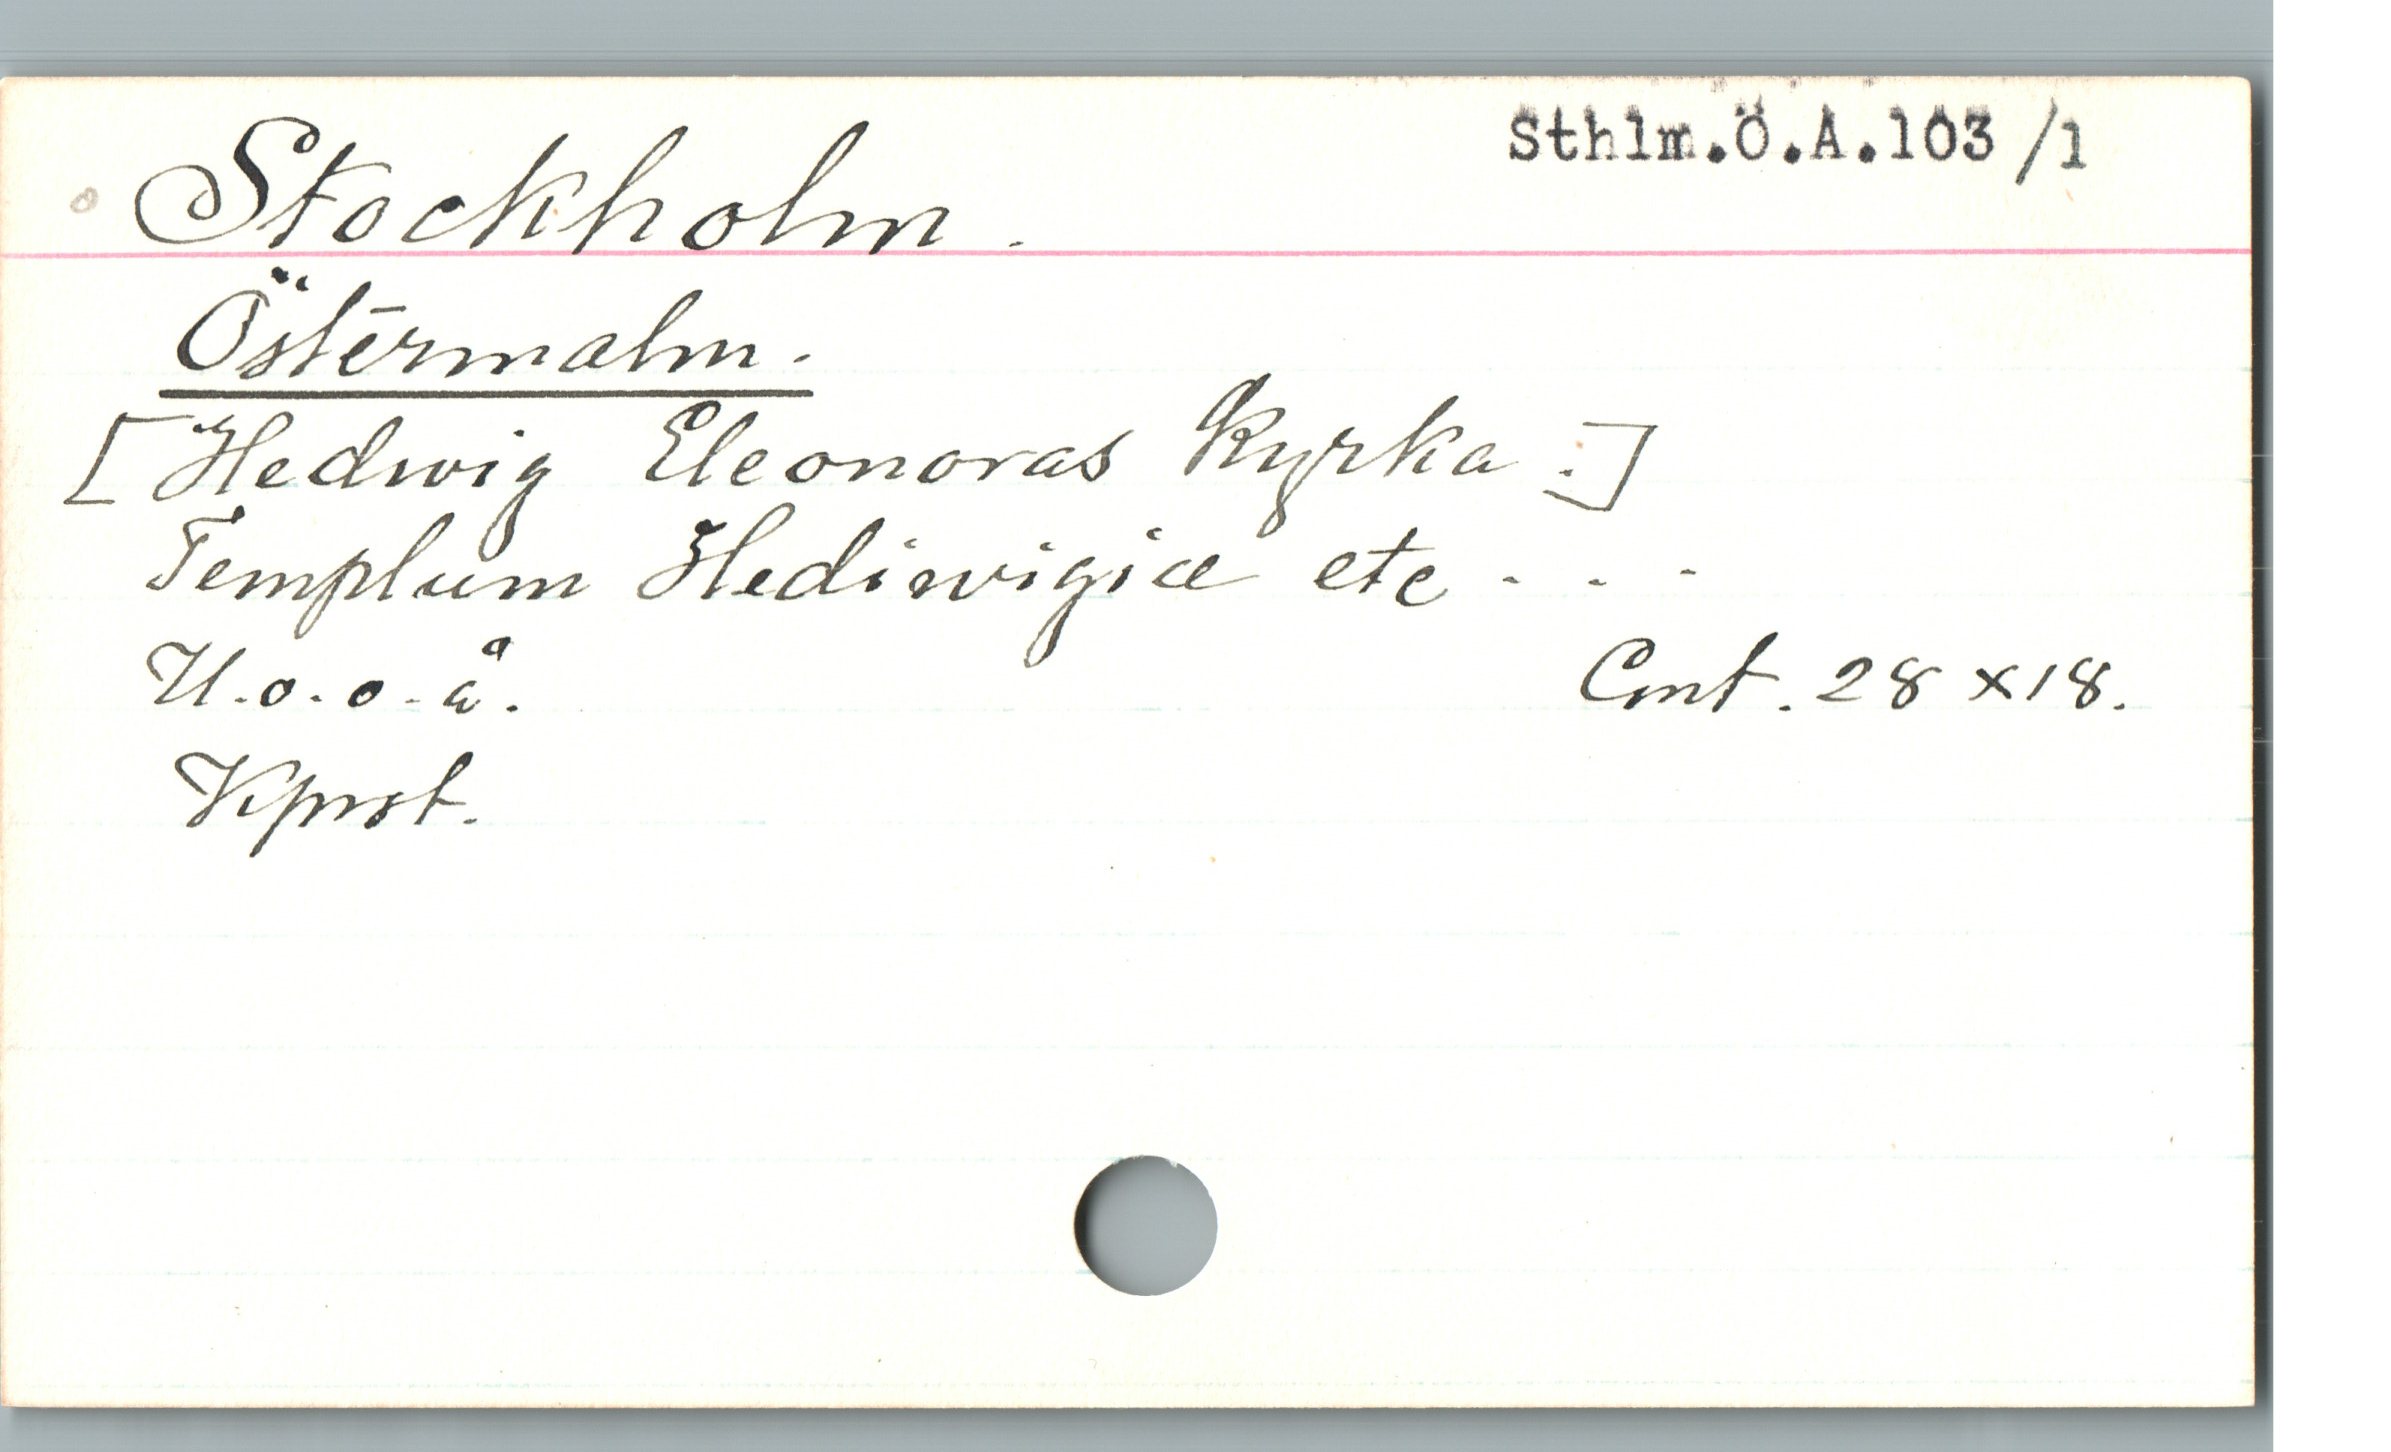 Sthlm.Ö.A.103/1
Stockholm.
Östermalm.
[Hedwig Eleonoras Kyrka.]
Templum Hediwigiæ etc...
U.o.o.å.
Cmt. 28 x 18.
Kprst.